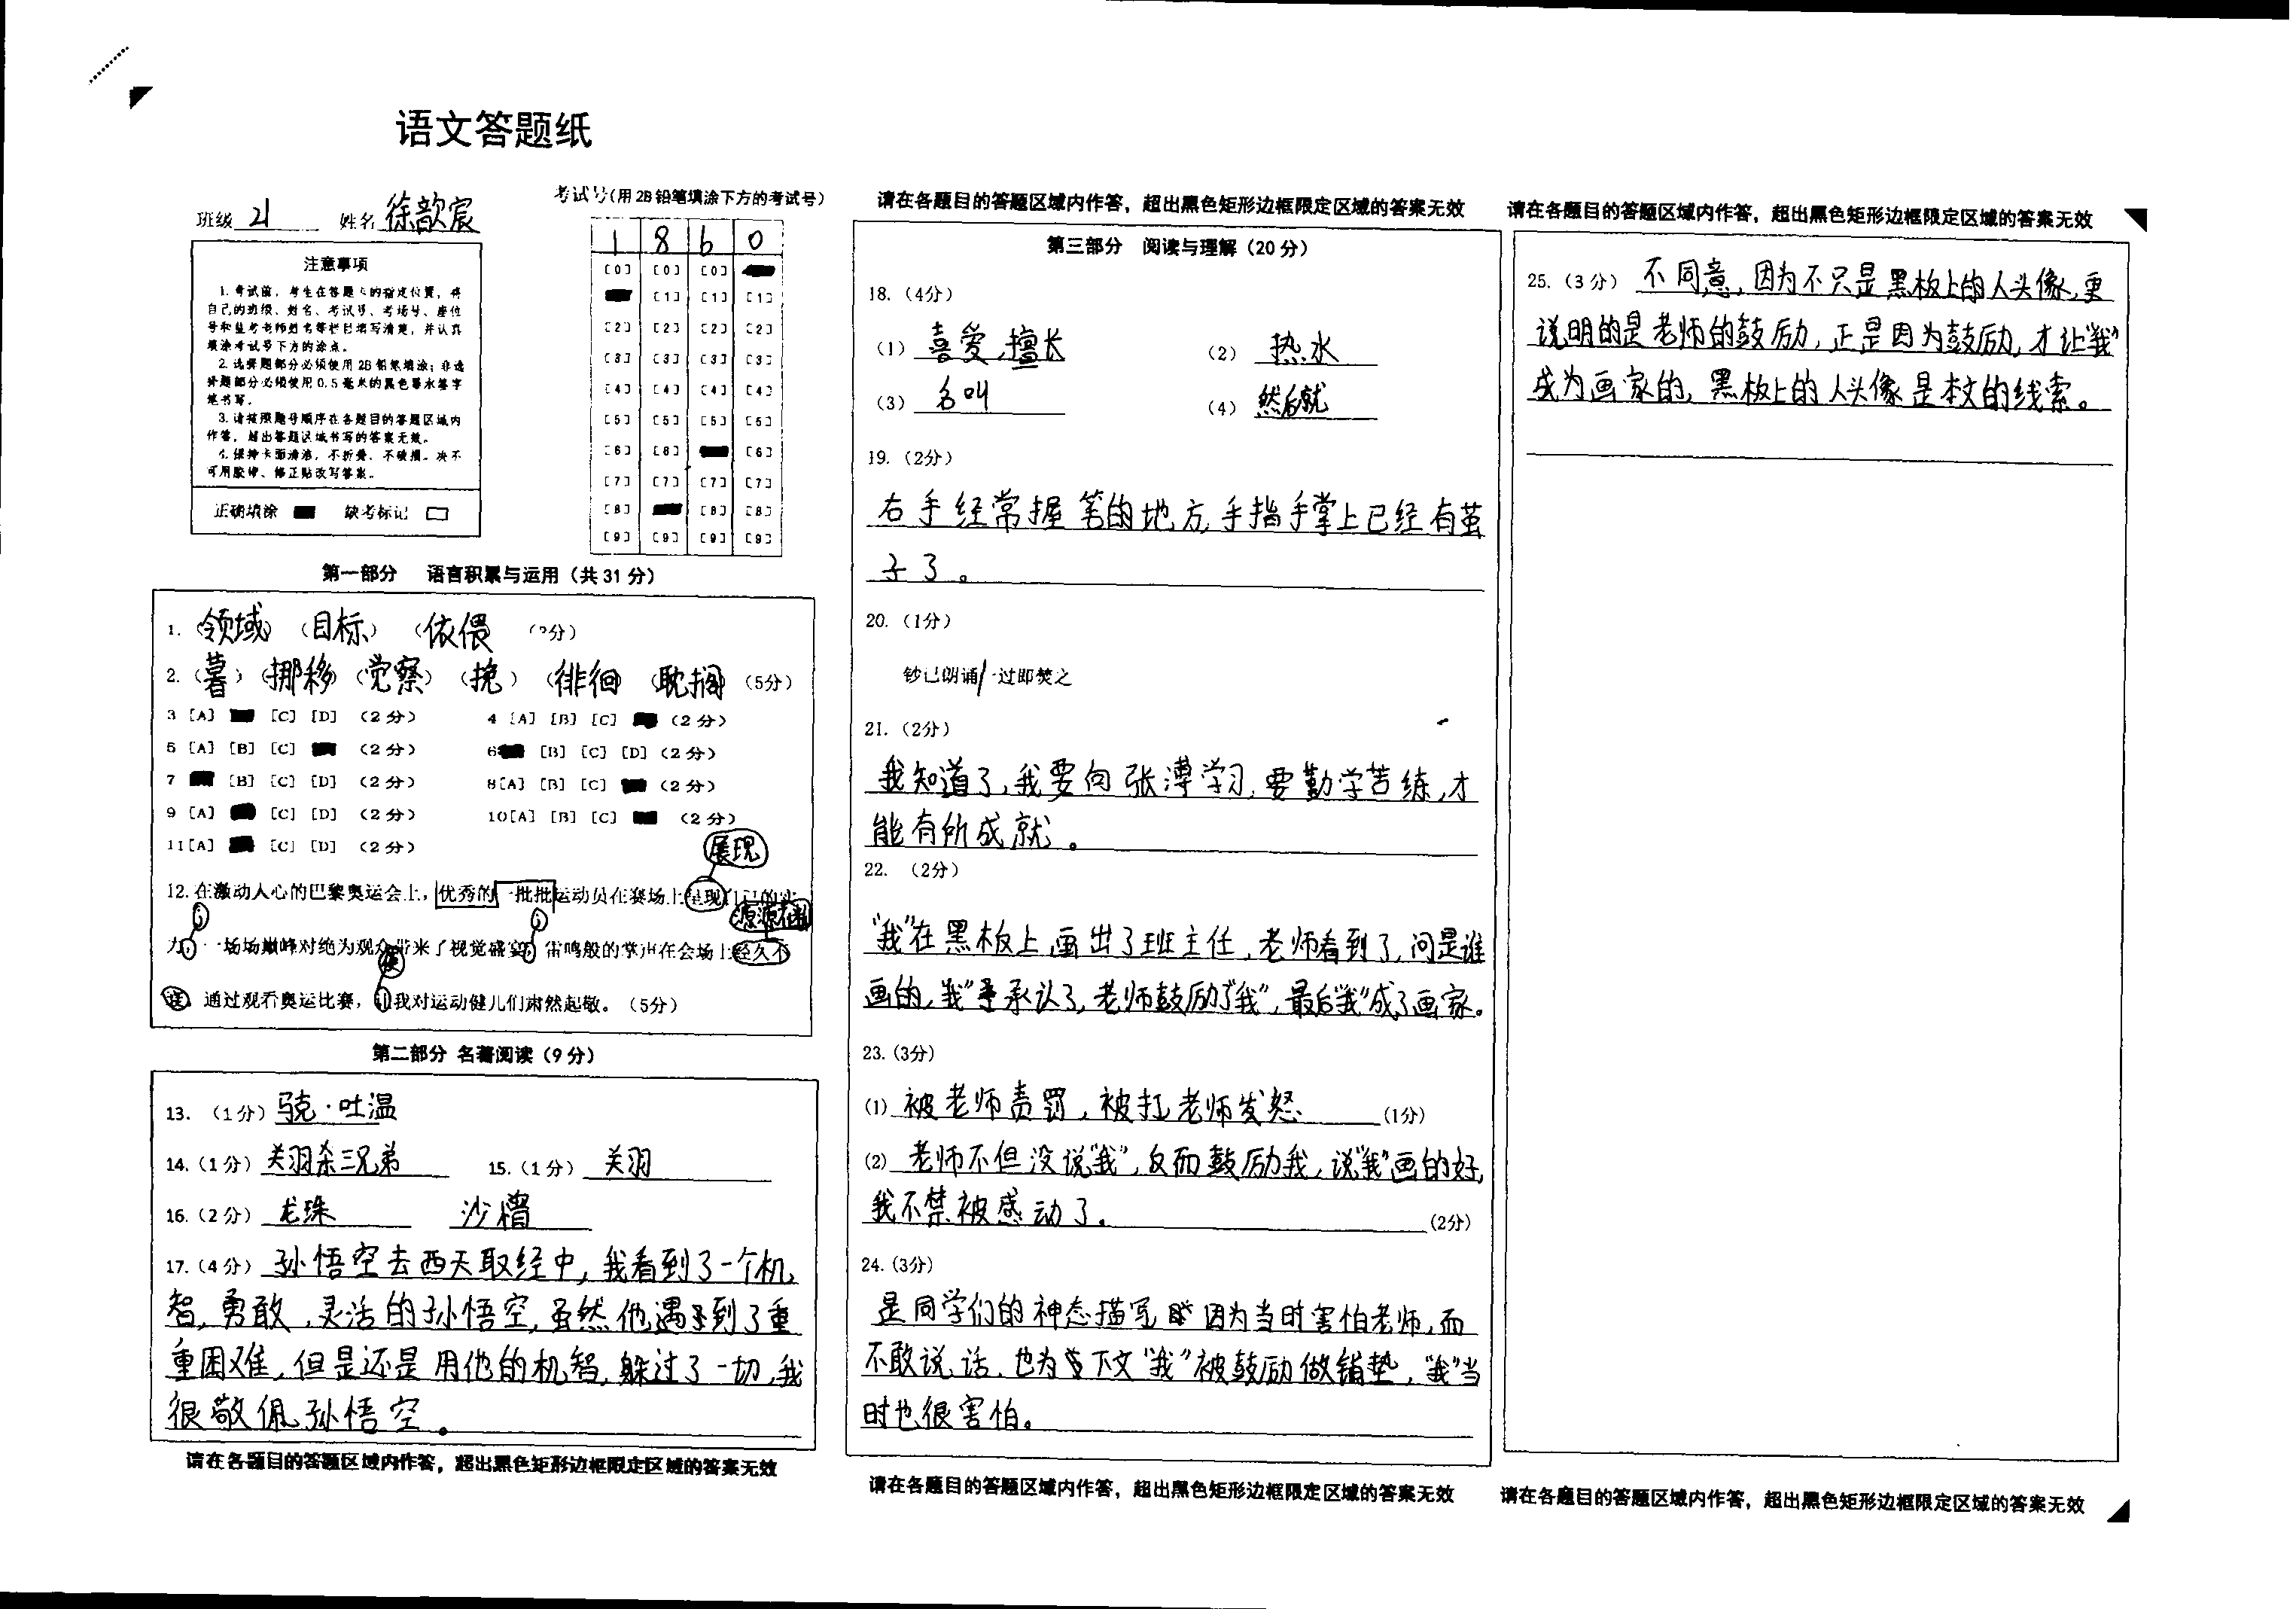 语文答题纸
班级 21 姓名 徐歆宸
考试号(用2B铅笔填涂下方的考试号)
1 8 6 0
[0] [0] [0]
[1] [1] [1]
[2] [2] [2] [2]
[3] [3] [3] [3]
[4] [4] [4] [4]
[5] [5] [5] [5]
[6] [6] [6]
[7] [7] [7] [7]
[8] [8] [8]
[9] [9] [9] [9]
注意事项
1.考试前,考生在答题卡的指定位置,将
自己的班级、姓名、考试号、考场号、座位
号和监考老师姓名等栏目填写清楚,并认真
填涂考试号下方的涂点。
2.选择题部分必须使用2B铅笔填涂;非选
择题部分必须使用0.5毫米的黑色墨水签字
笔书写。
3.请按照题号顺序在各题目的答题区域内
作答,超出答题区域书写的答案无效。
4.保持卡面清洁,不折叠、不破损。决不
可用胶带、修正贴改写答案。
正确填涂 缺考标记
第一部分 语言积累与运用(共31分)
1.(领域)(目标)(依偎)
2.(暮)(挪移)(觉察)(挽)(徘徊)(耽搁)(5分)
3 [A] [C] [D] (2分) 4 [A] [B] [C] (2分)
5 [A] [B] [C] (2分) 6 [B] [C] [D] (2分)
7 [B] [C] [D] (2分) 8[A] [B] [C] (2分)
9 [A] [C] [D] (2分) 10[A] [B] [C] (2分)
11[A] [C] [D] (2分)
展现
12.在激动人心的巴黎奥运会上,优秀的一批批运动员在赛场上呈现了自己的实
; ; 源源不断
力,一场场巅峰对绝为观众带来了视觉盛宴,雷鸣般的掌声在会场上经久不
使
通过观看奥运比赛,让我对运动健儿们肃然起敬。(5分)
第二部分 名著阅读(9分)
13.(1分)骁克·吐温
14.(1分)关羽杀三兄弟 15.(1分)关羽
16.(2分)龙珠 沙橹
17.(4分)孙悟空去西天取经中,我看到了一个机
智,勇敢,灵活的孙悟空,虽然他遇到了重
重困难,但是还是用他的机智,躲过了一切,我
很敬佩孙悟空。
请在各题目的答题区域内作答,超出黑色矩形边框限定区域的答案无效
请在各题目的答题区域内作答,超出黑色矩形边框限定区域的答案无效
第三部分 阅读与理解(20分)
18.(4分)
(1)喜爱,擅长 (2)热水
(3)名叫 (4)然后就
19.(2分)
右手经常握笔的地方,手指手掌上已经有茧
子了。
20.(1分)
钞已朗诵/一过即焚之
21.(2分)
我知道了,我要向张溥学习,要勤学苦练,才
能有所成就。
22.(2分)
“我”在黑板上画出了班主任,老师看到了,问是谁
画的,“我”承认了,老师鼓励了“我”,最后“我”成了画家。
23.(3分)
(1)被老师责罚,被打,老师发怒 (1分)
(2)老师不但没说“我”,反而鼓励我,说“我”画的好,
我不禁被感动了。 (2分)
24.(3分)
是同学们的神态描写 因为当时害怕老师,而
不敢说话,也为下文“我”被鼓励做铺垫,“我”当
时也很害怕。
请在各题目的答题区域内作答,超出黑色矩形边框限定区域的答案无效
请在各题目的答题区域内作答,超出黑色矩形边框限定区域的答案无效
25.(3分)不同意,因为不只是黑板上的人头像,更
说明的是老师的鼓励,正是因为鼓励,才让“我”
成为画家的,黑板上的人头像是本文的线索。
请在各题目的答题区域内作答,超出黑色矩形边框限定区域的答案无效